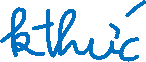 kthúc